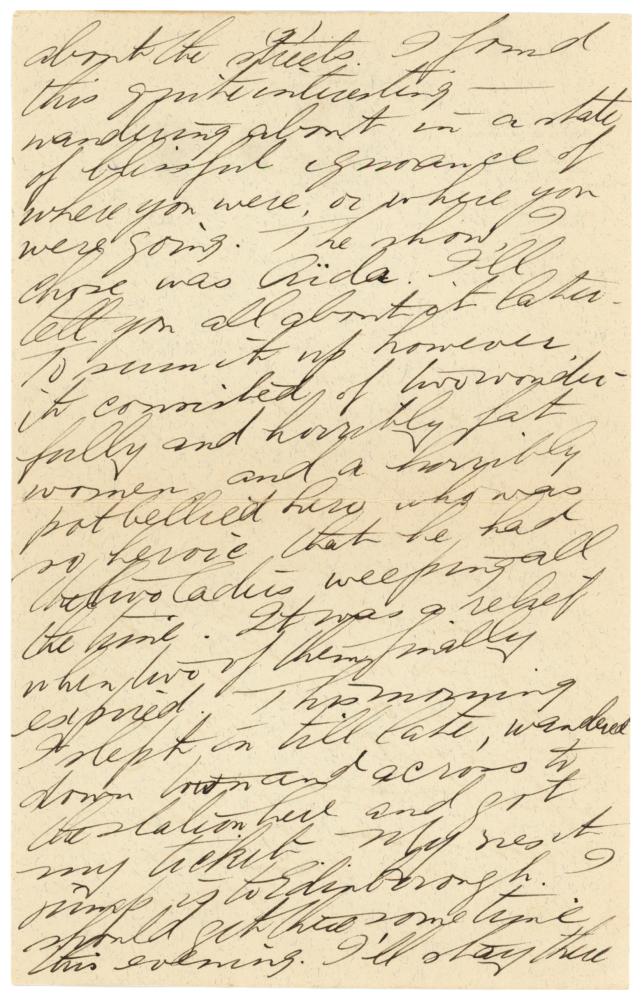 (2)
about the streets. I found
this quite interesting —
wandering about in a state
of blissful ignorance of
where you were, or where you
were going. The show, I
chose was Aïda. I'll
tell you all about it later.
To sum it up however,
it consisted of two wonder-
fully and horribly fat
women and a horribly
potbellied hero who was
so heroic that he had
the two ladies weeping all
the time. It was a relief
when two of them finally
expired. This morning
I slept in till late, wandered
down town and across to
the station here and got
my ticket. My next
jump is to Edinborough. I
should get there sometime
this evening. I'll stay there